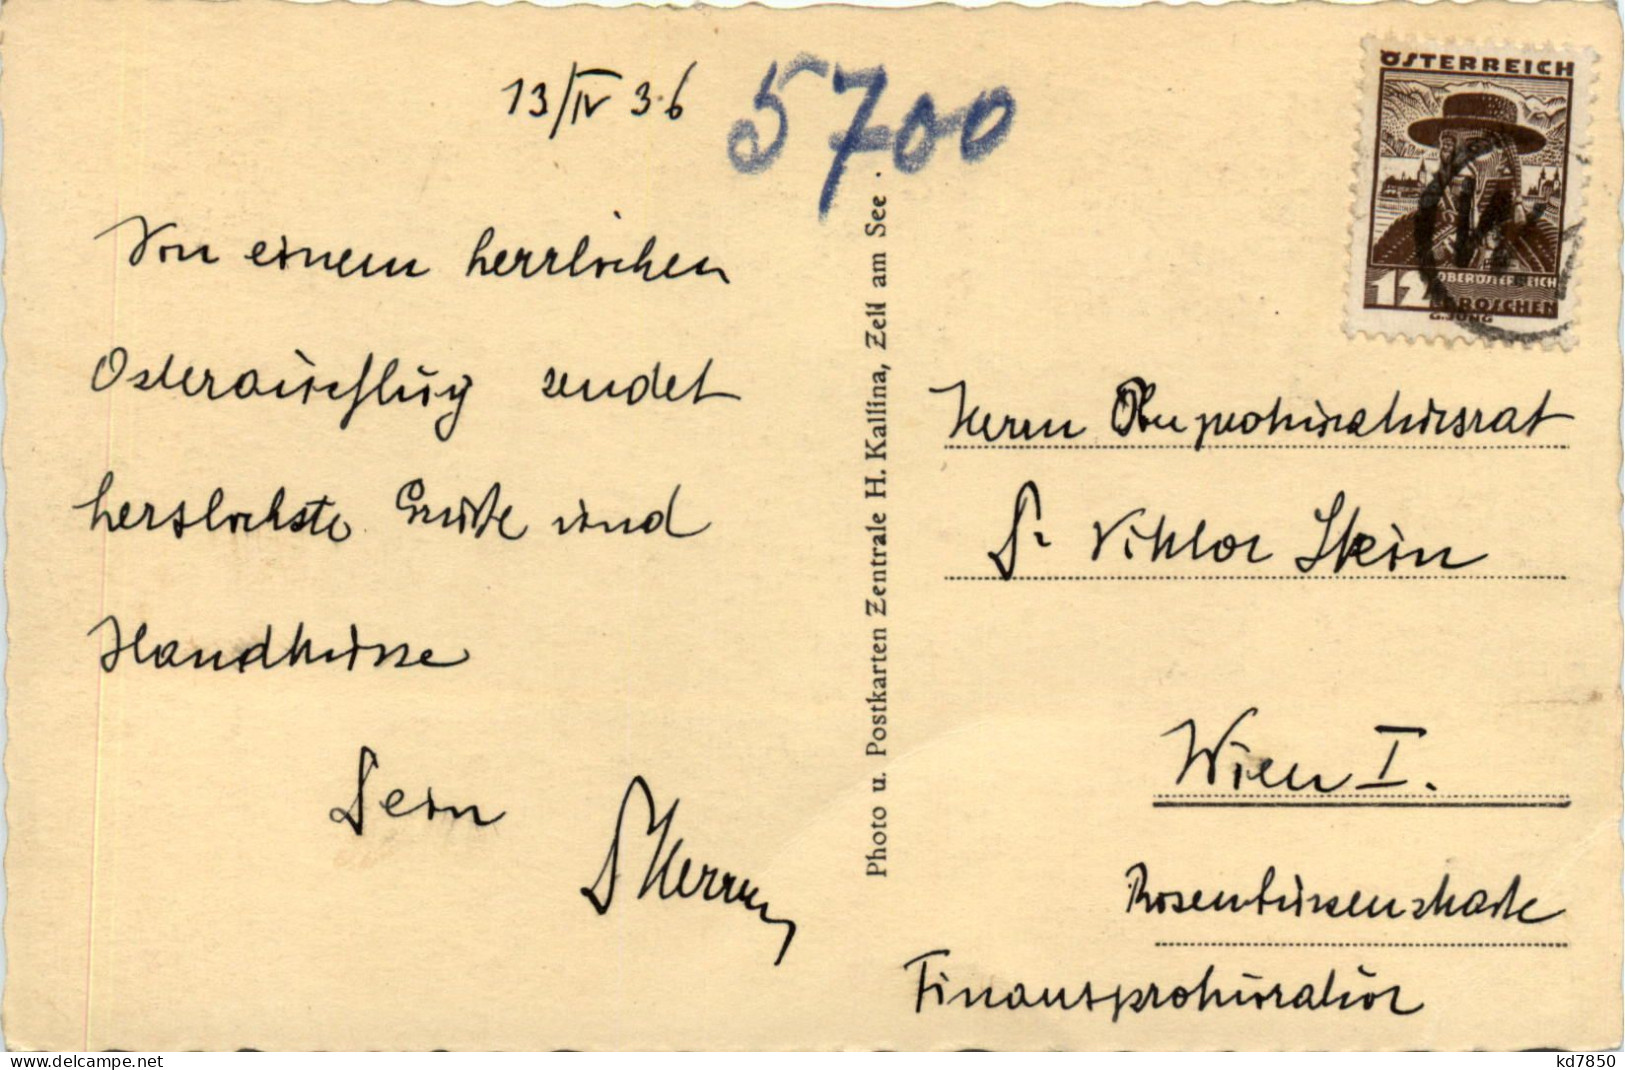 13/IV 36
5700
Von einem herrlichen
Osterausflug sendet
herzlichste Grüße und
Handküsse
Dein
Photo u. Postkarten Zentrale H. Kallina, Zell am See .
ÖSTERREICH
OBERÖSTERREICH
12 GROSCHEN
G. JUNG
Herrn Oberprokuraturrat
Dr Viktor Stein
Wien I.
Rosenbursenstraße
Finanzprokuratur
www.delcampe.net
kd7850